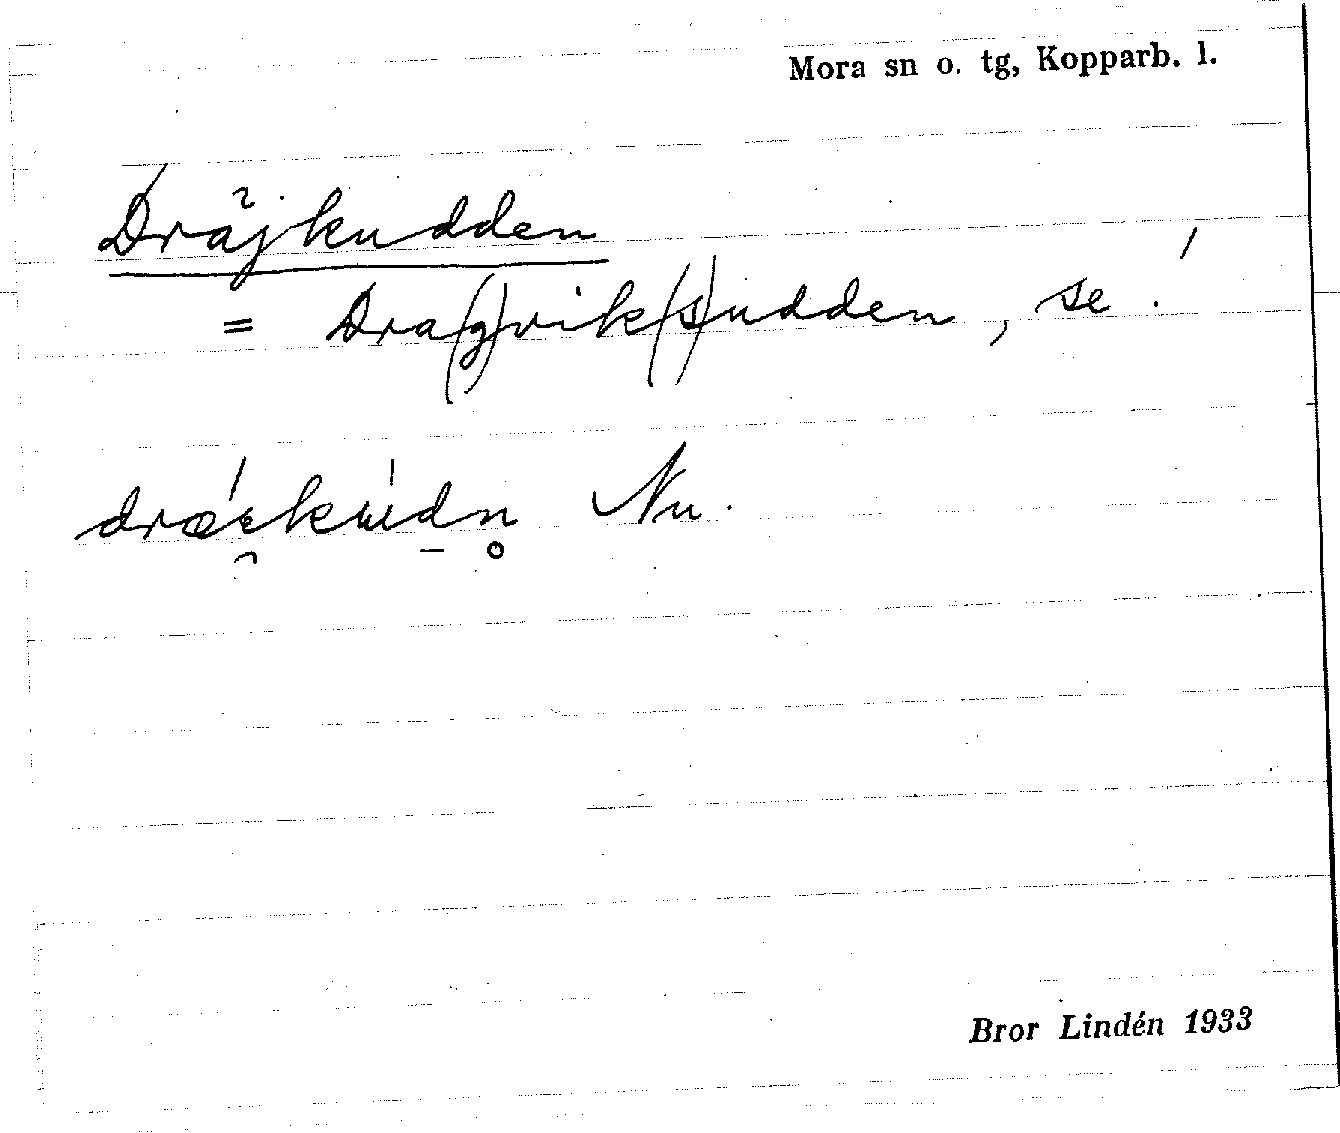 Mora sn o. tg, Kopparb. l.
Dräjkudden
= Dra(g)vik(s)udden, se!
Nu.
Bror Lindén 1933